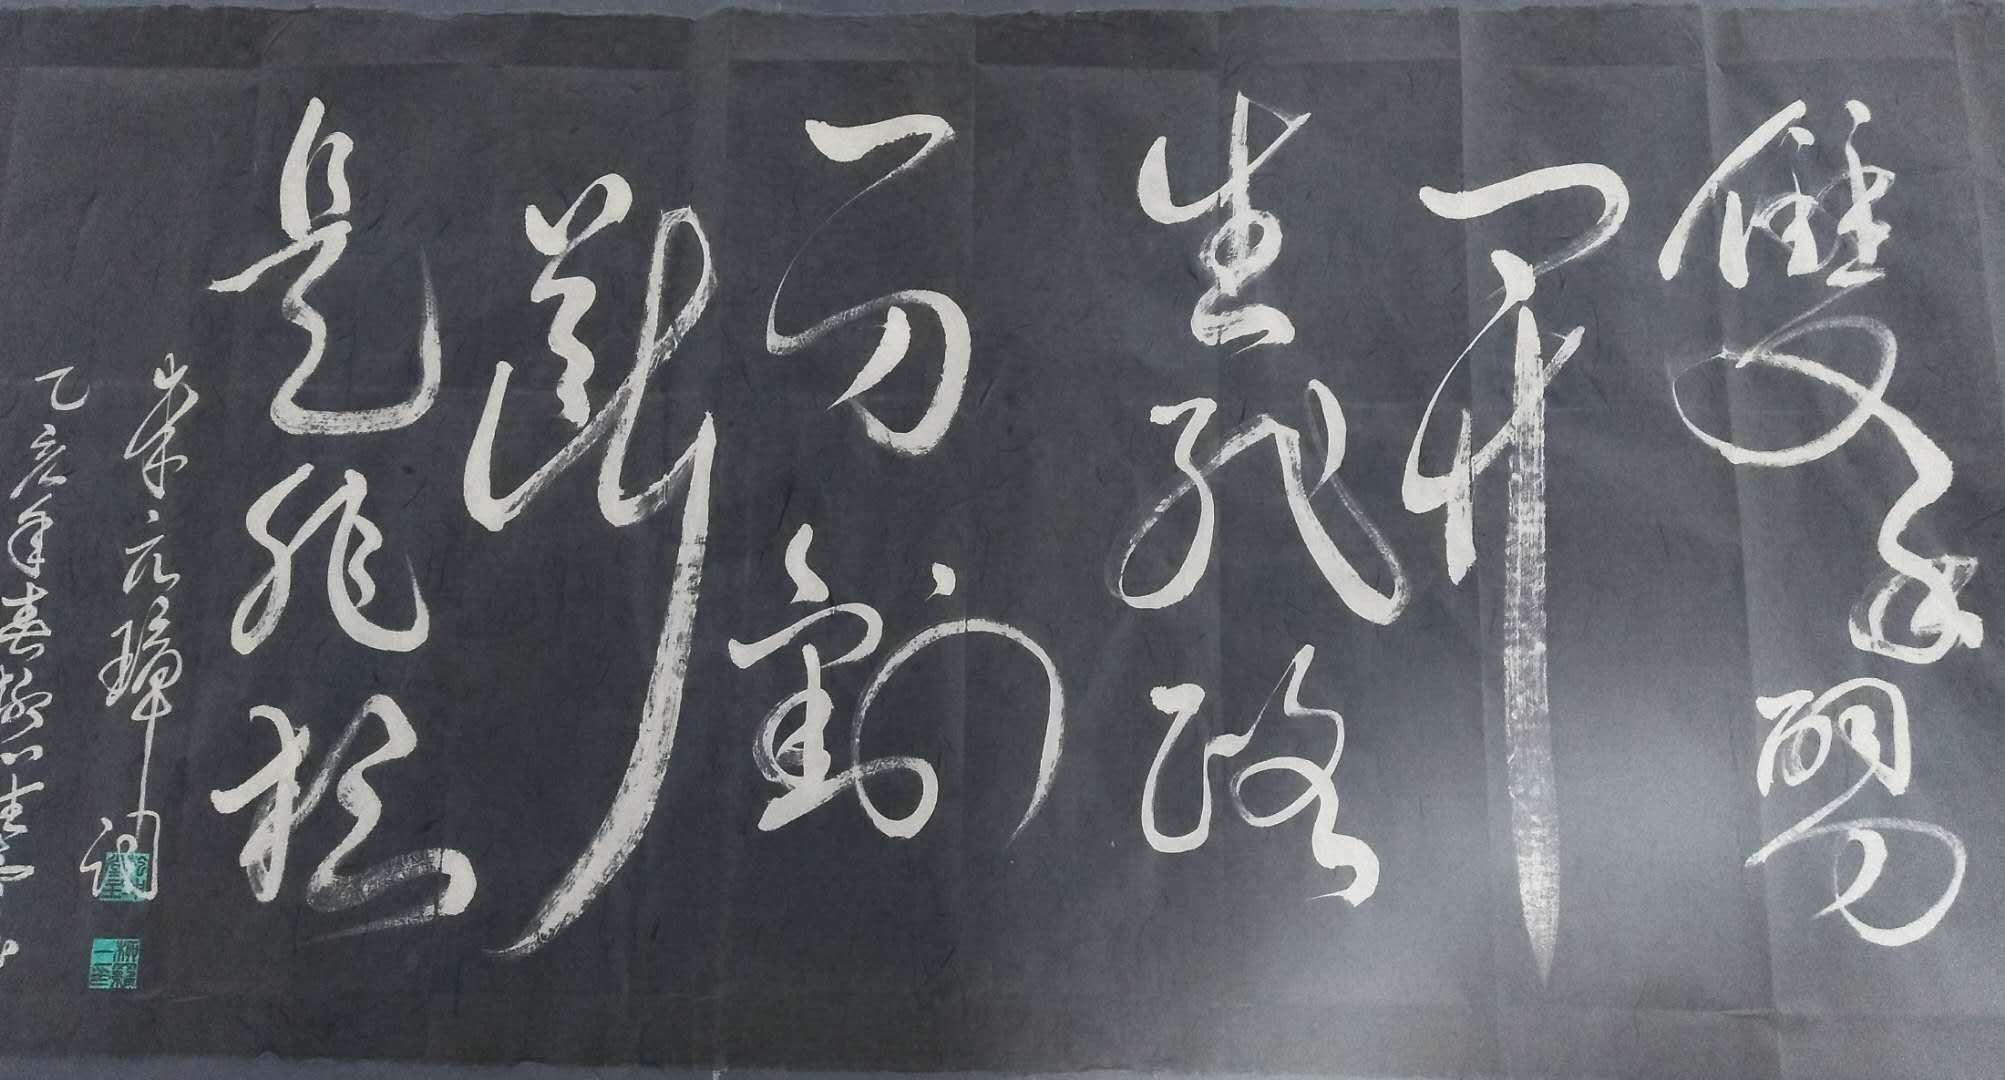 雙手劈
開
生死路
一刀割
斷
是非根
朱元璋詞
乙亥年春